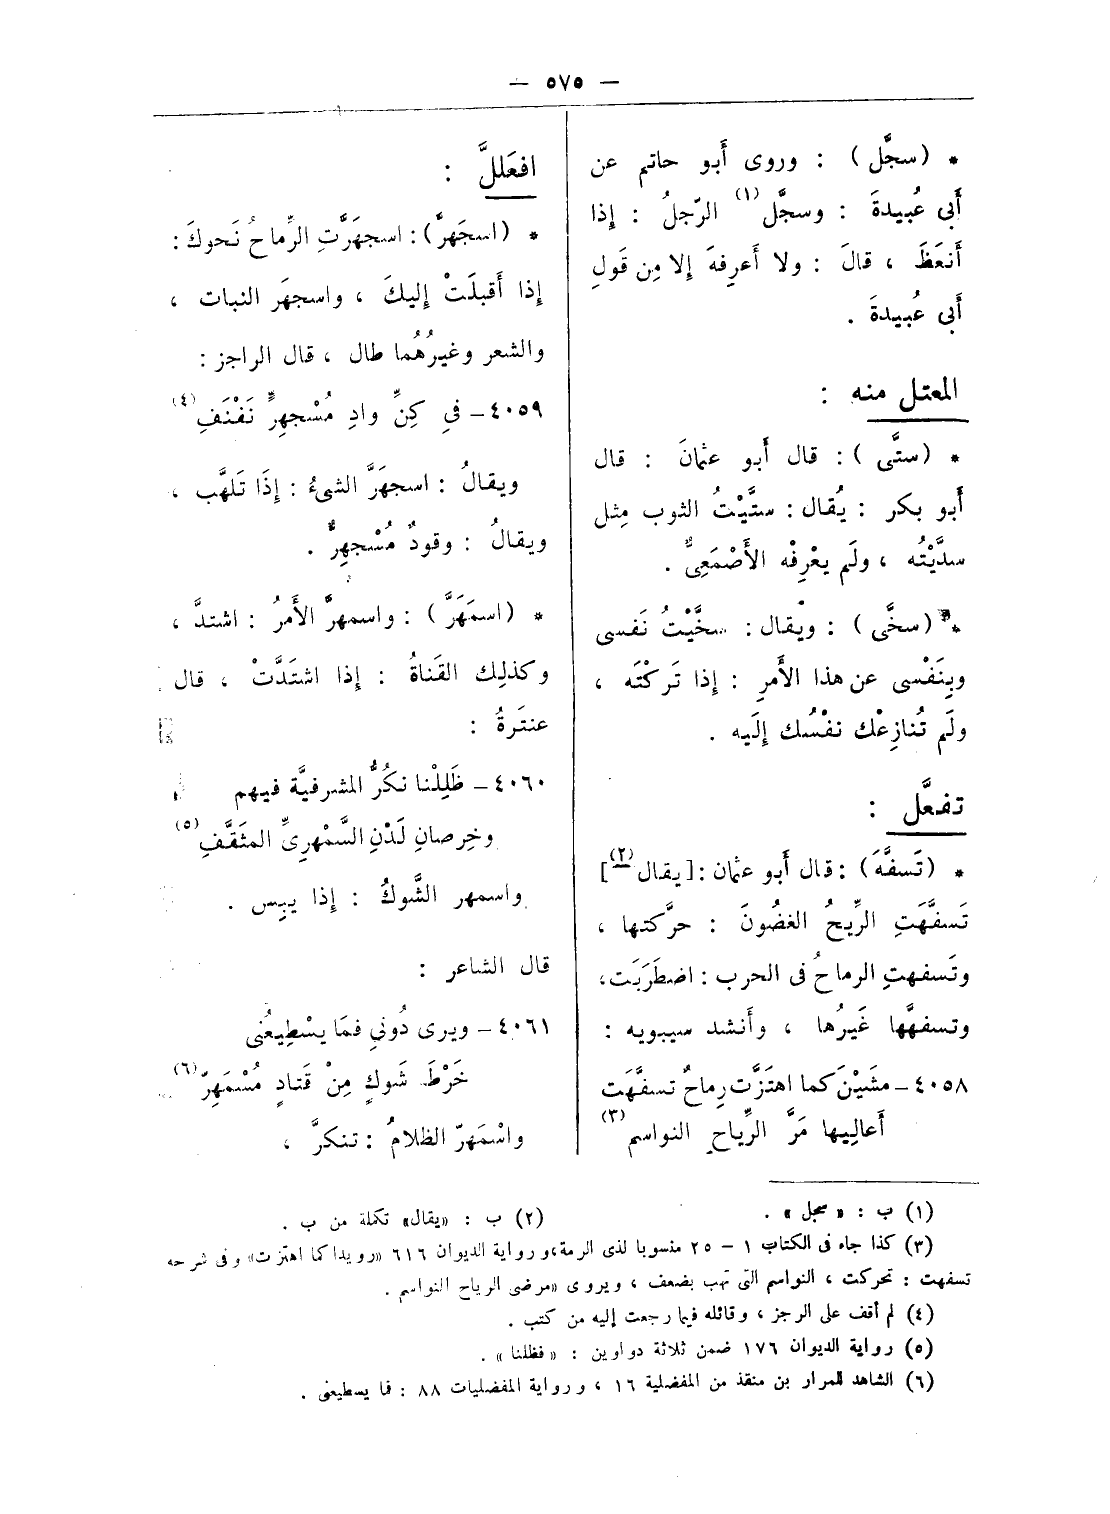 — ٥٧٥ —
* (سجَّل) : وروى أَبو حاتم عن
أَبى عُبيدةَ : وسجَّل (١) الرّجلُ : إِذا
أَنعَظَ ، قالَ : ولا أَعرِفهَ إِلا مِن قَولِ
أَبى عُبيدةَ .
المعتل منه :
* (ستَّى) : قال أَبو عثمانَ : قال
أَبو بكر : يُقال : ستَّيْتُ الثوب مِثل
سدَّيْتُه ، ولَم يعْرِفْه الأَصْمَعِىُّ .
* (سخَّى) : ويْقال : سخَّيْتُ نَفسى
وبِنَفْسى عن هذا الأَمرِ : إِذا تَركْتَه ،
ولَم تُنازِعْك نفْسُك إِلَيه .
تفعَّل :
* (تَسفَّهَ) : قال أَبو عثمان : [يقال (٢)]
تَسفَّهَتِ الرِّيحُ الغصُونَ : حرَّكتها ،
وتَسفهتِ الرماحُ فى الحرب : اضطَرَبَت ،
وتسفهَّها غَيرُها ، وأَنشد سيبويه :
٤٠٥٨ – مشَيْنَ كما اهتَزَّت رِماحٌ تسفَّهَت
أَعالِيها مَرَّ الرِّياحِ النواسم (٣)
افعَللَّ :
* (اسجَهرَّ) : اسجهَرَّتِ الرِّماحُ نَحوكَ :
إِذا أَقبلَتْ إِليكَ ، واسجهَر النبات ،
والشعر وغيرُهُما طال ، قال الراجز :
٤٠٥٩ – فىِ كِنِّ وادِ مُسْجهِرٍّ نَفْنَفِ (٤)
ويقالُ : اسجهَرَّ الشىءُ : إِذَا تَلهَّب ،
ويقالُ : وقودٌ مُسْجهِرٌّ .
* (اسمَهَرَّ) : واسمهرَّ الأَمرُ : اشتدَّ ،
وكذلِك القَناةُ : إِذا اشتَدَّتْ ، قال
عنتَرةُ :
٤٠٦٠ – ظَلِلْنا نكُرُّ المشرفيَّة فيهم
وخِرصانِ لَدْنِ السَّمْهرِىِّ المثَقَّفِ (٥)
واسمهر الشَّوكُ : إِذا يبِس .
قال الشاعر :
٤٠٦١ – ويرى دُونىِ فمَا يسْطِيعُنى
خَرْطَ شَوكٍ مِنْ قَتادٍ مُسْمَهِرّ (٦)
واسْمَهَرّ الظلامُ : تنكرَّ ،
(١) ب : «سجل» .
(٢) ب : «يقال» تكملة من ب .
(٣) كذا جاء فى الكتاب ١ – ٢٥ منسوبا لذى الرمة، ورواية الديوان ٦١٦ «رويدا كما اهتزت» وفى شرحه
تسفهت : تحركت ، النواسم التى تهب بضعف ، ويروى «مرضى الرياح النواسم .
(٤) لم أقف على الرجز ، وقائله فيما رجعت إليه من كتب .
(٥) رواية الديوان ١٧٦ ضمن ثلاثة دواوين : «فظلنا» .
(٦) الشاهد للمرار بن منقذ من المفضلية ١٦ ، ورواية المفضليات ٨٨ : فما يسطيعنى .